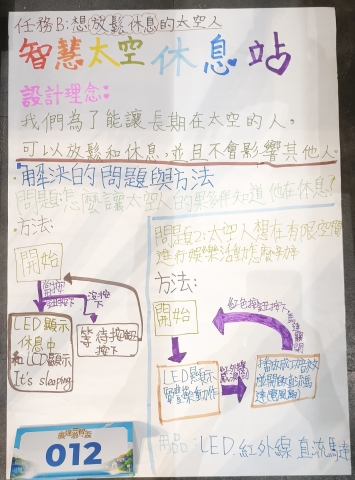 任務B:想放鬆休息的太空人
智慧太空休息站
設計理念:
我們為了能讓長期在太空的人,
可以放鬆和休息,並且不會影響其他人.
·解決的問題與方法
問題1:怎麼讓太空人的夥伴知道他在休息?
方法:
開始
按下
沒按下
LED顯示
休息中
和LCD顯示
It's sleeping
等待按鈕
按下
問題2:太空人想在有限空間
進行娛樂活動怎麼辦
方法:
開始
紅色按鈕按下
LED顯示
紅外線
播放
用品:LED.紅外線 直流馬達
012